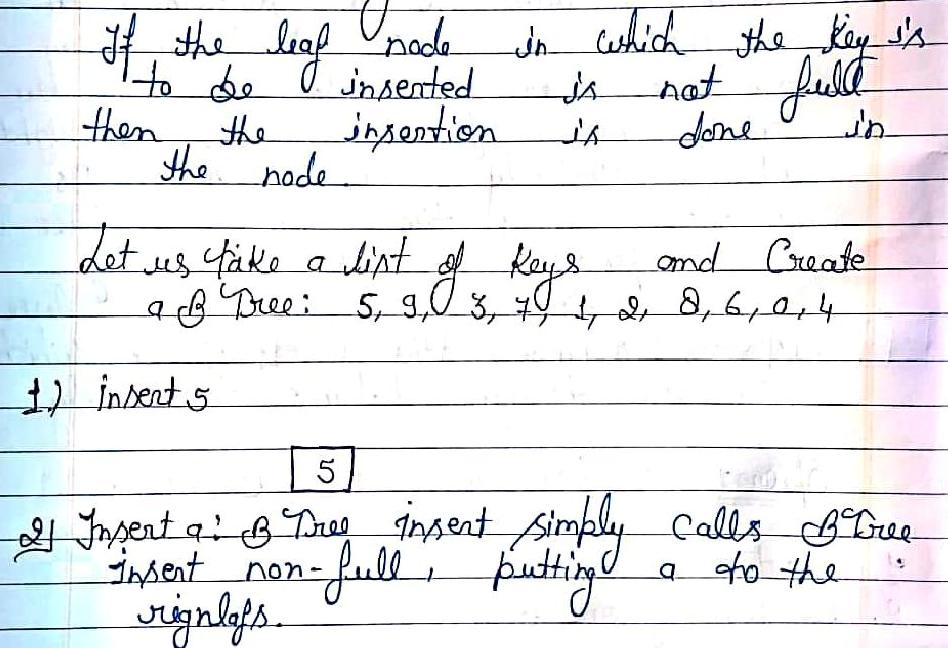 If the leaf node in which the key is
to be inserted is not full
then the insertion is done in
the node
Let us take a list of keys and Create
a B Tree: 5, 9, 3, 7, 1, 2, 8, 6, 0, 4
1) insert 5
5
2) Insert 9: B Tree insert simply calls B Tree
insert non-full, putting 9 to the